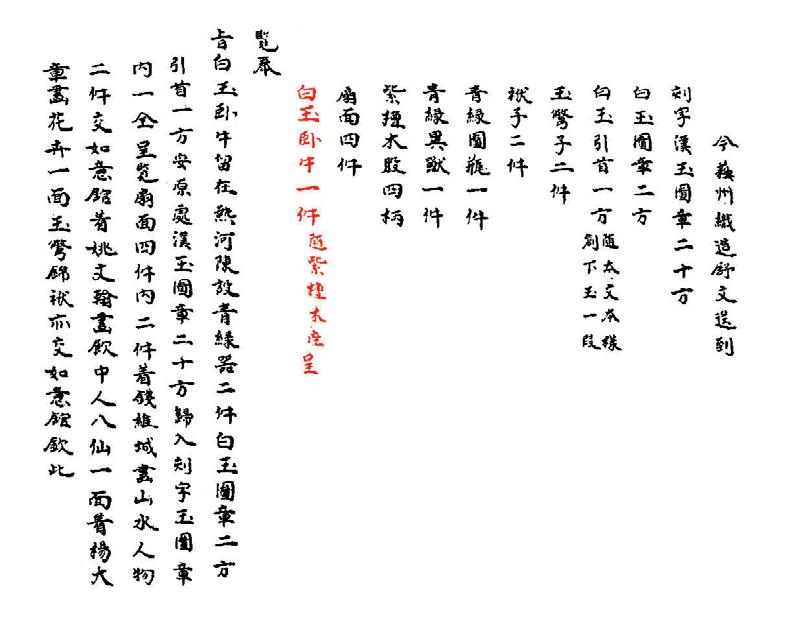 今蘇州織造舒文送到
刻字漢玉圖章二十方
白玉圖章二方
白玉引首一方隨木文木樣
剜下玉一段
玉彆子二件
袱手二件
青緑圖瓶一件
青緑異獸一件
紫檀木股四柄
扇面四件
白玉卧牛一件隨紫檀木座呈
覽奉
旨白玉卧牛留在熱河陳設青緑器二件白玉圖章二方
引首一方安原處漢玉圖章二十方歸入刻字玉圖章
内一全呈覽扇面四件内二件着錢維城畫山水人物
二件交如意館着姚文翰畫飲中人八仙一面着楊大
章畫花卉一面玉彆錦袱亦交如意館欽此